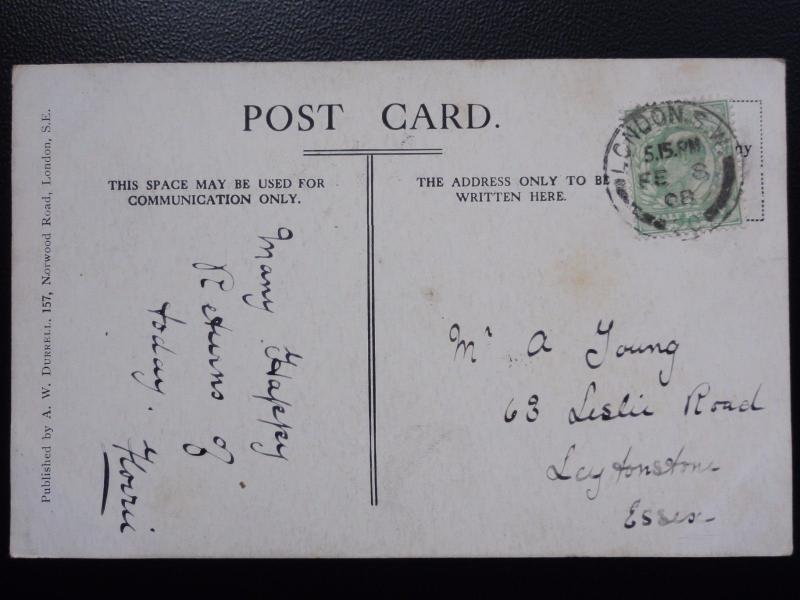 POST CARD.
THIS SPACE MAY BE USED FOR
COMMUNICATION ONLY.
THE ADDRESS ONLY TO BE
WRITTEN HERE.
LONDON. S.W.
5.15. PM
FE 8
08
Published by A. W. DURRELL, 157, Norwood Road, London, S.E.
Many Happy
Returns of
today.
Mr A Young
63 Leslie Road
Leytonstone
Essex